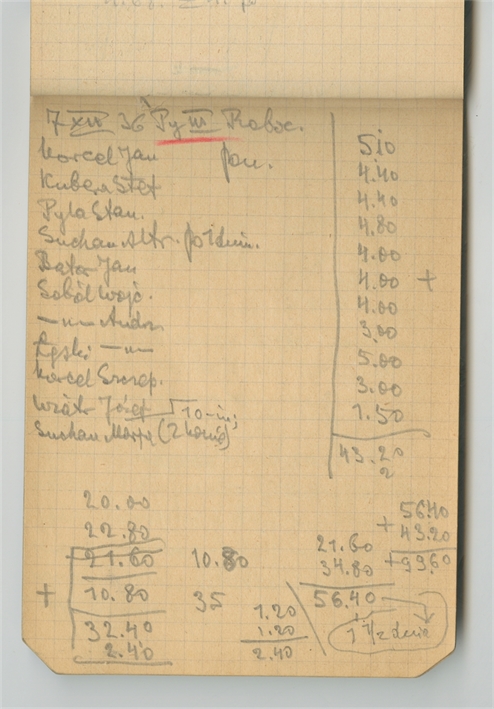 7 XII 36 Py III Roboc.
Korcel Jan pon.
Kubera Stef
Pyla Stan.
Suchan Altr. po 1 dniu.
Bator Jan
Soból Wojc.
—"— Andrz
Łęski —"—
Korcel Szczep.
Wiatr Józef 10-in;
Suchan Marja (2 konie)
510
4.40
4.40
4.80
4.00
4.00 +
4.00
3.00
5.00
3.00
1.50
43.20
2
20.00
22.80
21.60 10.80
+ 10.80 35
32.40
2.40
1.20
1.20
2.40
21.60
34.80
56.40
1 1/2 dnia
56.40
+ 43.20
+ 99.60